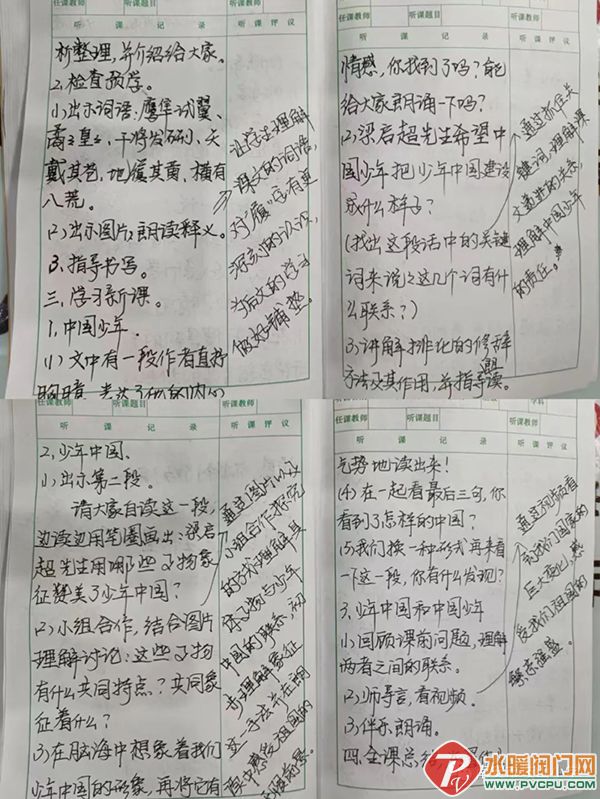 任课教师 听课题目
听课记录 听课评议
析整理,并介绍给大家。
2.检查预学。
(1)出示词语:鹰隼试翼、
矞矞皇皇、干将发硎、天
戴其苍,地履其黄、横有
八荒。
(2)出示图片,朗读释义。
3.指导书写。
三、学习新课。
1.中国少年。
(1)文中有一段作者直抒
胸臆,表达了他的内心
让学生理解
课文的词语,
对"履"还有更
深刻的认识,
为后文的学习
做好铺垫。
任课教师 听课题目
听课记录 听课评议
情感,你找到了吗?能
给大家朗诵一下吗?
(2)梁启超先生希望中
国少年把少年中国建设
成什么样子?
(找出这段话中的关键
词来说说这几个词有什
么联系?)
(3)讲解排比的修辞
手法及其作用,并指导读。
通过抓住关
键词,理解课
文递进的关系,
理解中国少年
的责任。
任课教师 听课题目
听课记录 听课评议
2.少年中国。
(1)出示第二段。
请大家自读这一段,
边读边用笔圈画出:梁启
超先生用哪些事物象
征赞美了少年中国?
(2)小组合作,结合图片
理解讨论:这些事物
有什么共同特点?共同象
征着什么?
(3)在脑海中想象着我们
少年中国的形象,再将它有
通过图片以及
小组合作探究
的方式,理解具
体事物与少年
中国的联系,初
步理解象征
这一手法并在朗
诵中感受祖国的
任课教师 听课题目 学科
听课记录 听课评议
气势地读出来!
(4)在一起看最后三句,你
看到了怎样的中国?
(5)我们换一种形式再来看
一下这一段,你有什么发现?
3.少年中国和中国少年
(1)回顾课前问题,理解
两者之间的联系。
(2)师导言,看视频。
(3)伴乐朗诵。
四、全课总结
通过视频看
到我们国家的
巨大变化,感
受我们祖国的
繁荣强盛。
水暖阀门网
WWW.PVCPU.COM